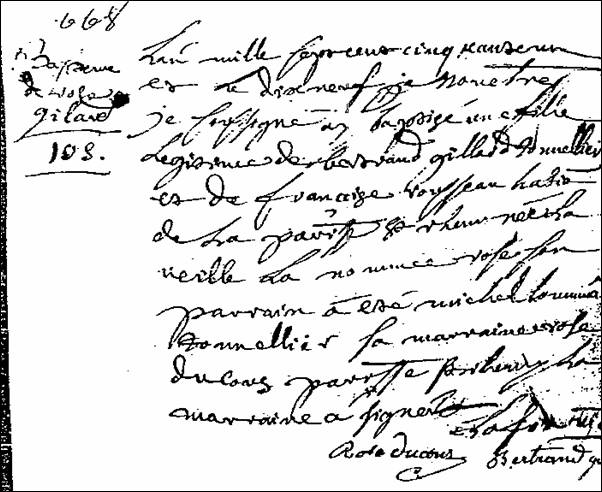 668
Bapteme
de rose
gilard
108.
Lan mille sept cent cinquante un
et le dix neuf je novembre
je soussigné ay baptisé une fille
Legitime de bertrand gillard tonnellier
et de francoise rousseau habit
de la paroisse St remy née la
veille La nommee rose son
parrain à eté michel
tonnellier sa marraine rose
ducous paroisse St remy La
marraine a signer
Rose ducous Bertrand